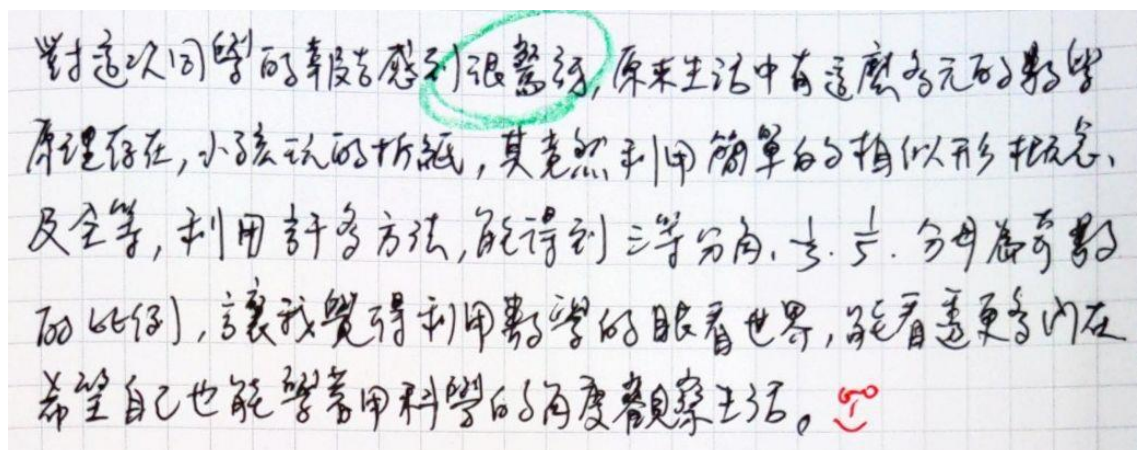 對這次同學的報告感到很驚訝,原來生活中有這麼多元的數學
原理存在,小孩玩的折紙,其竟然利用簡單的相似形概念、
及全等,利用許多方法,能得到三等分角、⅓. ⅕. 分母為奇數
的比例,讓我覺得利用數學的眼看世界,能看透更多內在
希望自己也能學著用科學的角度觀察生活。